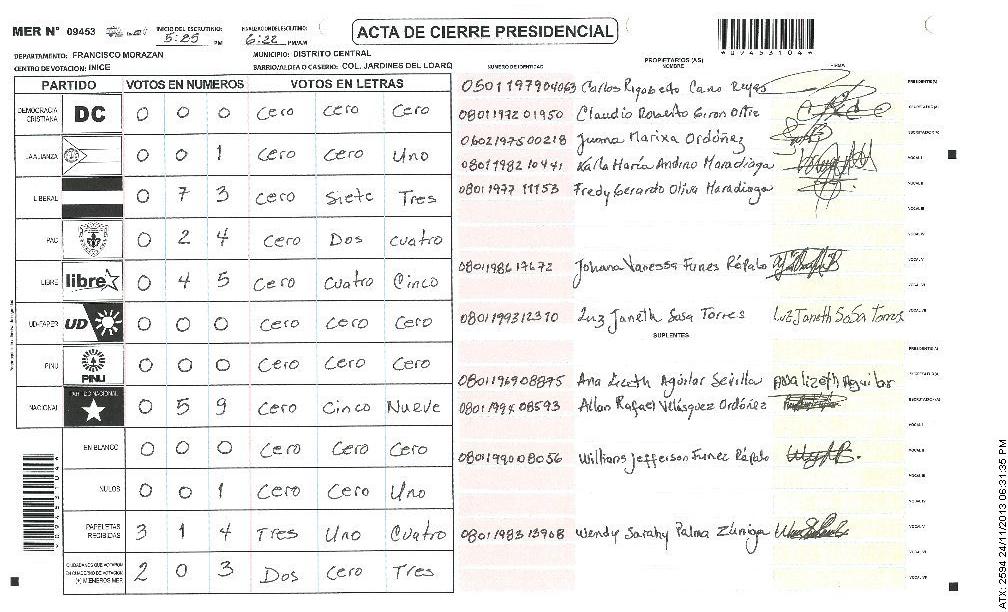 MER Nº 09453 INICIO DEL ESCRUTINIO: 5:25 PM FINALIZACION DEL ESCRUTINIO: 6:22 PM/AM ACTA DE CIERRE PRESIDENCIAL
*09453104*
DEPARTAMENTO: FRANCISCO MORAZAN MUNICIPIO: DISTRITO CENTRAL
CENTRO DE VOTACION: INICE BARRIO/ALDEA O CASERIO: COL. JARDINES DEL LOARQ
PARTIDO VOTOS EN NUMEROS VOTOS EN LETRAS
DEMOCRACIA CRISTIANA DC 0 0 0 Cero Cero Cero
LA ALIANZA 0 0 1 Cero Cero Uno
LIBERAL 0 7 3 Cero Siete Tres
PAC 0 2 4 Cero Dos Cuatro
LIBRE libre 0 4 5 Cero Cuatro Cinco
UD-FAPER UD 0 0 0 Cero Cero Cero
PINU PINU 0 0 0 Cero Cero Cero
NACIONAL PARTIDO NACIONAL 0 5 9 Cero Cinco Nueve
EN BLANCO 0 0 0 Cero Cero Cero
NULOS 0 0 1 Cero Cero Uno
PAPELETAS RECIBIDAS 3 1 4 Tres Uno Cuatro
CIUDADANOS QUE VOTARON EN CUADERNO DE VOTACION (+) MIEMBROS MER 2 0 3 Dos Cero Tres
PROPIETARIOS (AS)
NUMERO DE IDENTIDAD NOMBRE FIRMA
0501197904063 Carlos Rigoberto Cano Reyes PRESIDENTE(A)
0801197201950 Claudio Roberto Giron SECRETARIO(A)
0602197500218 Juana Marixa Ordóñez ESCRUTADOR(A)
0801198210441 Karla María Andino Maradiaga VOCAL I
0801 1977 11153 Fredy Gerardo Oliva Maradiaga VOCAL II
VOCAL III
VOCAL IV
0801198617672 Johana Vanessa Funes Rápalo VOCAL V
VOCAL VI
0801199312310 Luz Janeth Sosa Torres Luz Janeth Sosa Torres VOCAL VII
SUPLENTES
PRESIDENTE(A)
0801196908895 Ana Lizeth Aguilar Sevilla Ana lizeth Aguilar SECRETARIO(A)
0801199408593 Allan Rafael Velásquez Ordóñez ESCRUTADOR(A)
VOCAL I
0801199008056 Willians Jefferson Funez Rápalo VOCAL II
VOCAL III
VOCAL IV
0801198313908 Wendy Sarahy Palma Zúniga VOCAL V
VOCAL VI
VOCAL VII
ATX: 2594 24/11/2013 06:31:35 PM